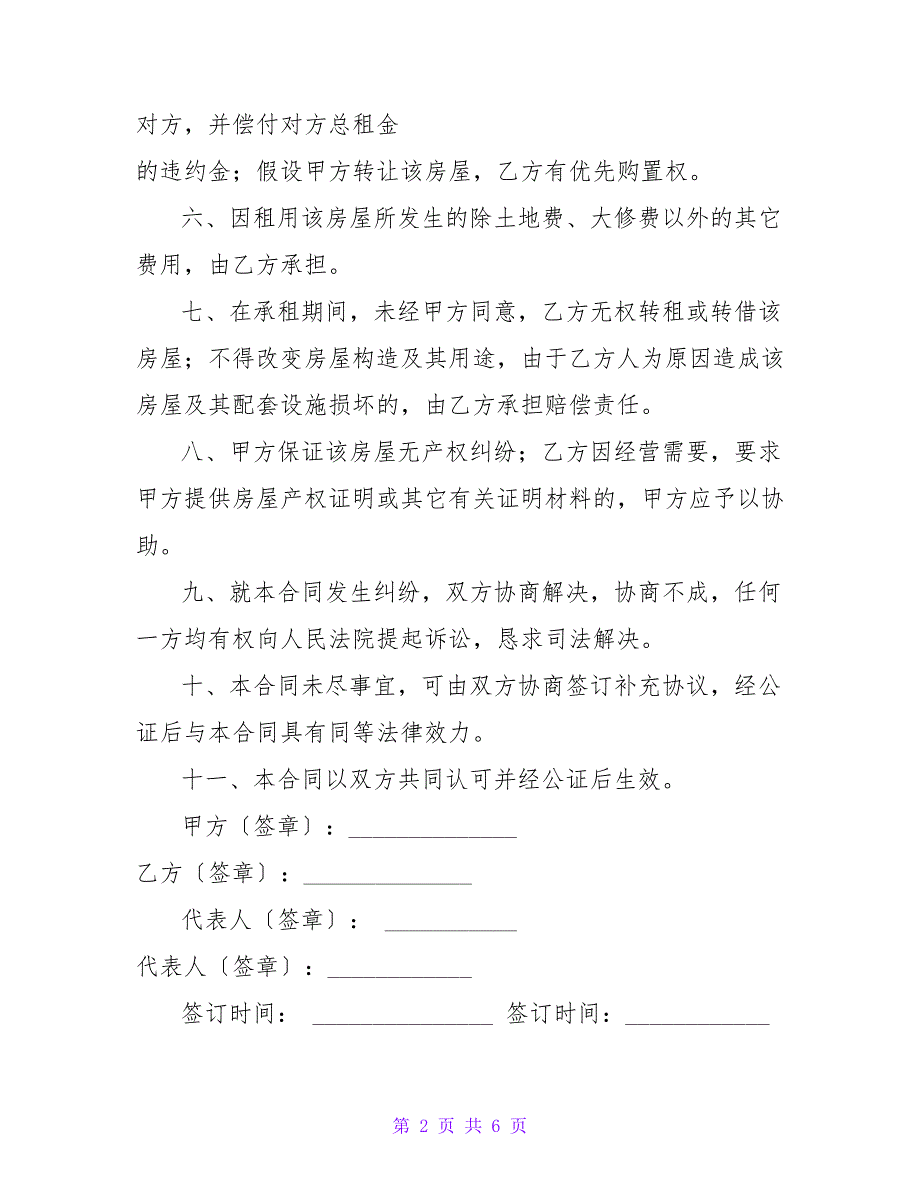 对方，并偿付对方总租金
的违约金；假设甲方转让该房屋，乙方有优先购置权。
六、因租用该房屋所发生的除土地费、大修费以外的其它
费用，由乙方承担。
七、在承租期间，未经甲方同意，乙方无权转租或转借该
房屋；不得改变房屋构造及其用途，由于乙方人为原因造成该
房屋及其配套设施损坏的，由乙方承担赔偿责任。
八、甲方保证该房屋无产权纠纷；乙方因经营需要，要求
甲方提供房屋产权证明或其它有关证明材料的，甲方应予以协
助。
九、就本合同发生纠纷，双方协商解决，协商不成，任何
一方均有权向人民法院提起诉讼，恳求司法解决。
十、本合同未尽事宜，可由双方协商签订补充协议，经公
证后与本合同具有同等法律效力。
十一、本合同以双方共同认可并经公证后生效。
甲方〔签章〕：______________
乙方〔签章〕：______________
代表人〔签章〕： ___________
代表人〔签章〕：____________
签订时间： _______________ 签订时间：____________
第 2 页 共 6 页